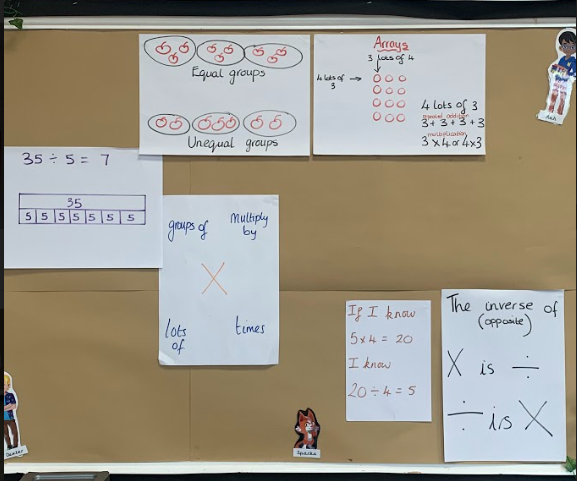 Equal groups
Unequal groups
Arrays
3 lots of 4
4 lots of →
3
4 lots of 3
repeated addition
3+3+3+3
multiplication
3 x 4 or 4x3
35 ÷ 5 = 7
35
5 5 5 5 5 5 5
groups of
multiply
by
X
lots
of
times
If I know
5x4 = 20
I know
20 ÷ 4 = 5
The inverse of
(opposite)
X is ÷
÷ is X
Ash
Dexter
Sparks